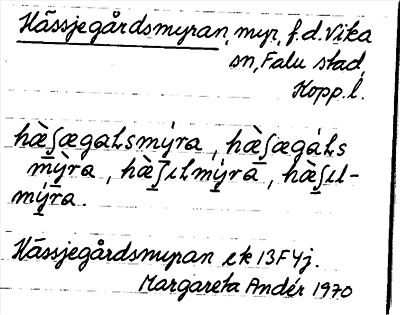 Hässjegårdsmyran, myr, f.d. Vika
sn, Falu stad,
Kopp. l.
hæ̀ʃægaLsmýra, hæ̀ʃægáLs
mỳra, hæ̀ʃɩLmýra, hæ̀ʃɩL-
mýra.
Hässjegårdsmyran ek 13F 4j.
Margareta Andér 1970